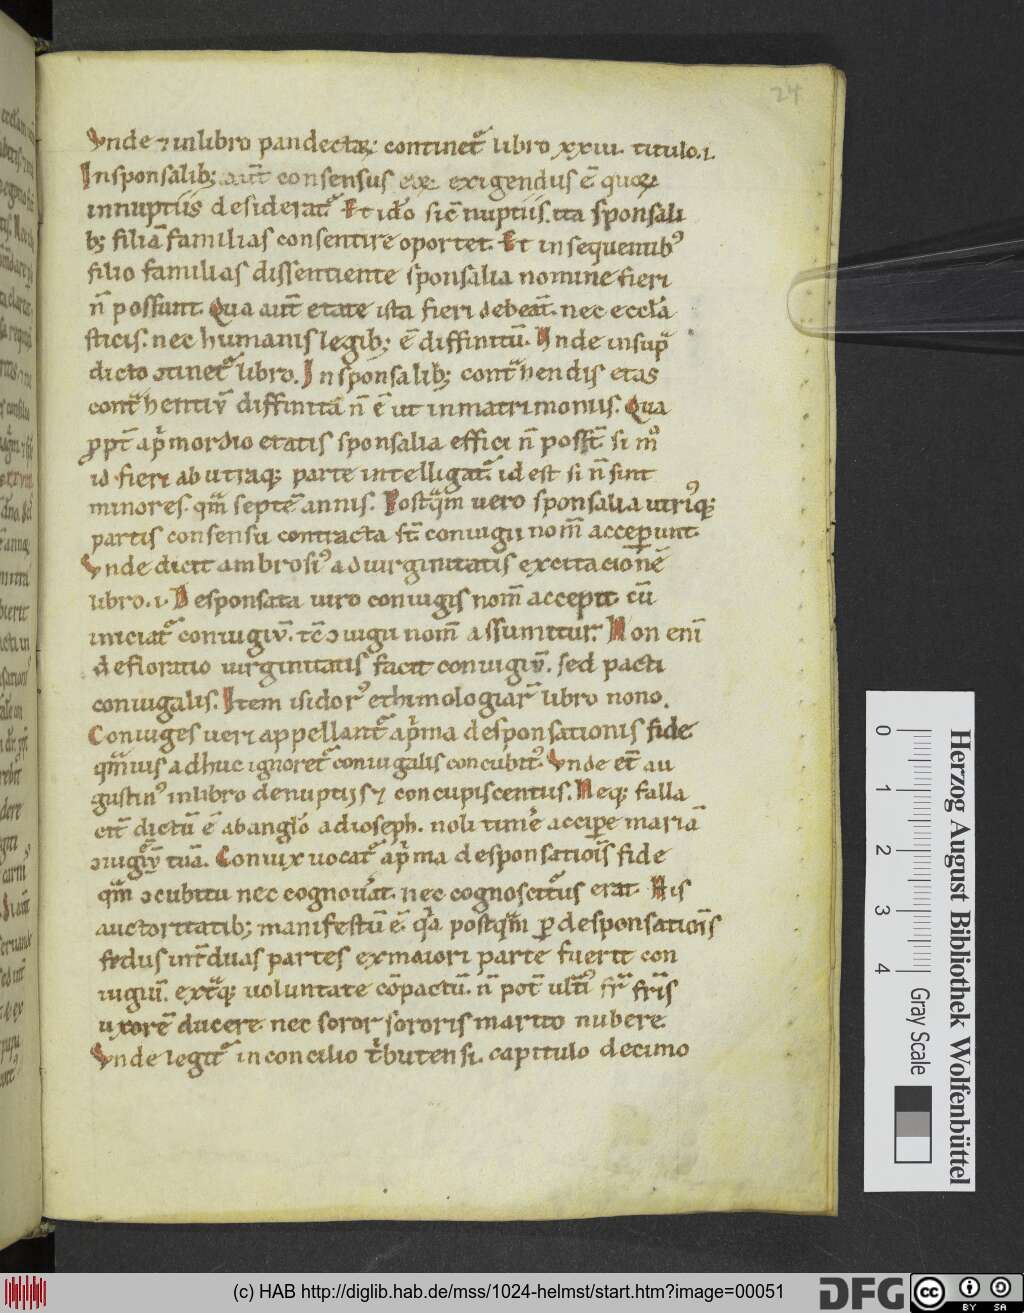 24
Vnde ⁊ inlibro pandectaꝝ: continet᷑ libro xxiii. titulo.i.
Insponsalib; aut̄ consensus eoꝝ exigendus ē quoꝝ
innuptiis desiderat᷑ Et ido sic̄ nuptiis.ita sponsali
b; filiā familias consentire oportet. Et insequentibꝰ
filio familias dissentiente sponsalia nomine fieri
n̄ possunt. Qua aut̄ etate ista fieri debeāt. nec eccl̄a
sticis. nec humanis legib; ē diffinitū. Vnde insup̄
dicto ꝯtinet᷑ libro. Insponsalib; contͣhendis etas
contͣhentiū diffinita n̄ ē ut inmatrimoniis. Qua
ꝓpt̄ apͥmordio etatis sponsalia effici n̄ posst̄ si mͦ
id fieri ab utraq; parte intelligat᷑ id est si n̄ sint
minores. qͣm septē annis. Postqͣm uero sponsalia utriꝰq;
partis consensu contracta st̄ coniugii nom̄ accepunt.
Vnde dicit ambrosiꝰ ad uirginitatis excitacionē
libro.i. Desponsata uiro coniugis nom̄ accepit. cū
iniciat᷑ coniugiū. tc̄ ꝯiugii nom̄ assumitur. Non eni
defloratio uirginitatis facit coniugiū. sed pacti
coniugalis. Item isidorꝰ ethimologiar̄ libro nono.
Coniuges ueri appellant᷑ apͥma desponsationis fide
qͣmuis adhuc ignoret᷑ coniugalis concubitꝰ. Vnde et̄ au
gustinꝰ inlibro denuptiis ⁊ concupiscentiis. Neq; falla
cit̄ dictū ē abanglo adioseph. noli timͤe accipe mariā
ꝯiugē tuā. Coniux uocat᷑ apͥma desponsatiois fide
qͣm ꝯcubitu nec cognouͤat. nec cogniturus erat. His
auctoritatib; manifestū ē. qͥa postqͣm ꝑ desponsatiois
fedus int̄ duas partes exmaiori parte fuerit con
iugiū. extͣq; uoluntate cōpactū. n̄ pot̄ ultͥꝰ fr̄ fris
uxorē ducere. nec soror sororis marito nubere.
Vnde legit᷑ inconcilio tͥbutensi. capitulo decimo
Herzog August Bibliothek Wolfenbüttel
0 1 2 3 4
Gray Scale
(c) HAB http://diglib.hab.de/mss/1024-helmst/start.htm?image=00051
DFG
cc BY SA